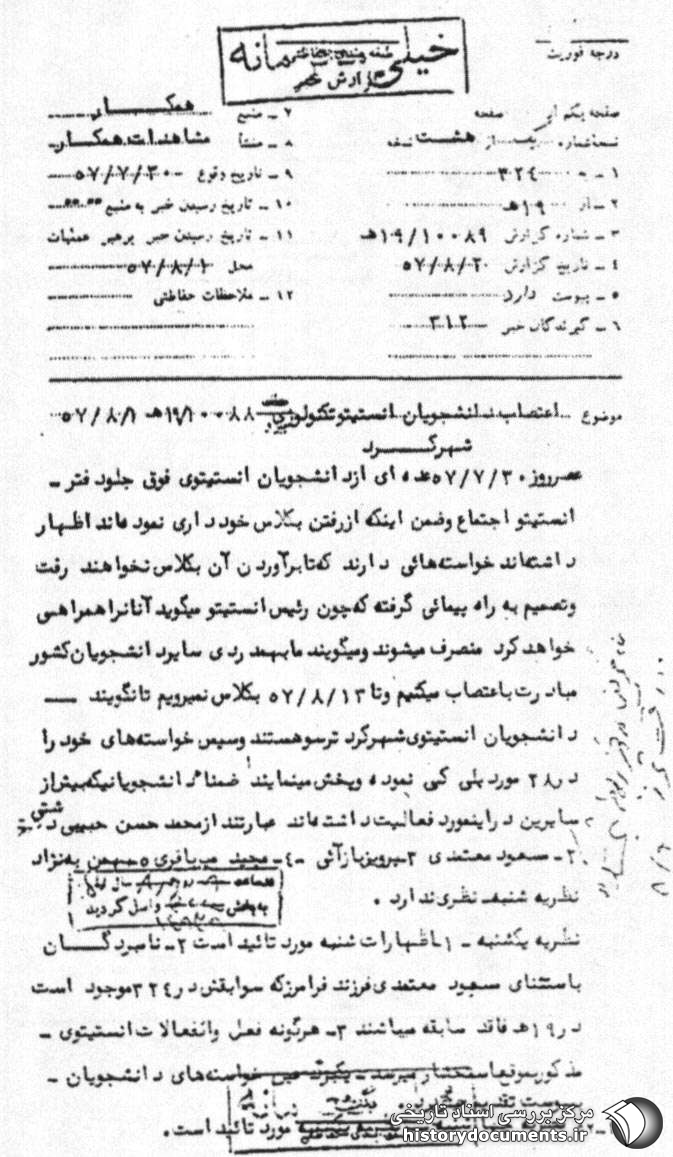 درجه فوریت
خیلی محرمانه
طبقه بندی حفاظتی
گزارش خبر
صفحه یکم از صفحه
نسخه شماره یک از هشت نسخه
۱ - به ۳۲٤
۲ - از ۱۹هـ
۳ - شماره گزارش ۱۹/۱۰۰۸۹هـ
٤ - تاریخ گزارش ۵۷/۸/۲۰
۵ - پیوست دارد
۶ - گیرندگان خبر ۳۱۲
۷ - منبع همکار
۸ - منشأ مشاهدات همکار
۹ - تاریخ وقوع ۵۷/۷/۳۰
۱۰ - تاریخ رسیدن خبر به منبع
۱۱ - تاریخ رسیدن خبر برهبر عملیات
محل ۵۷/۸/۱
۱۲ - ملاحظات حفاظتی
موضوع اعتصاب دانشجویان انستیتو تکنولوژی ۱۹/۱۰۰۸۸هـ ۵۷/۸/۱
شهرکرد
عصرروز ۵۷/۷/۳۰ عده ای ازدانشجویان انستیتوی فوق جلودفتر -
انستیتو اجتماع وضمن اینکه ازرفتن بکلاس خودداری نموده‌اند اظهار
داشته‌اند خواسته‌هائی دارند که‌تا برآوردن آن بکلاس نخواهند رفت
وتصمیم به راه پیمائی گرفته که‌چون رئیس انستیتو میگوید آنانرا همراهی
خواهدکرد منصرف میشوند ومیگویند مابهمدردی سایردانشجویان کشور
مبادرت باعتصاب میکنیم وتا ۵۷/۸/۱۳ بکلاس نمیرویم تانگویند
دانشجویان انستیتوی شهرکرد ترسوهستند وسپس خواسته‌های خود را
در۲۸ مورد پلی کپی نموده وپخش مینمایند ضمنا دانشجویانیکه‌بیش‌از
سایرین دراینمورد فعالیت داشته‌اند عبارتند ازمحمد حسن حبیبی دشتی
۲ - مسعود معتمدی ۳ - پرویزبازآئی ٤ - مجید میرباقری ۵ - بهمن به‌نژاد
نظریه شنبه - نظری ندارد .
به‌بخش واصل گردید
نظریه یکشنبه - ۱ - اظهارات شنبه مورد تائید است ۲ - نامبردگان
باستثنای مسعود معتمدی فرزند فرامرزکه سوابقش در ۳۲٤ موجود است
در ۱۹هـ فاقد سابقه میباشند ۳ - هرگونه فعل وانفعالات انستیتوی -
مذکوربموقع‌باستحضار میرسد - یکبرگ عین خواسته‌های دانشجویان -
بپیوست تقدیم میگردد.
مورد تائید است .
مرکز بررسی اسناد تاریخی
historydocuments.ir